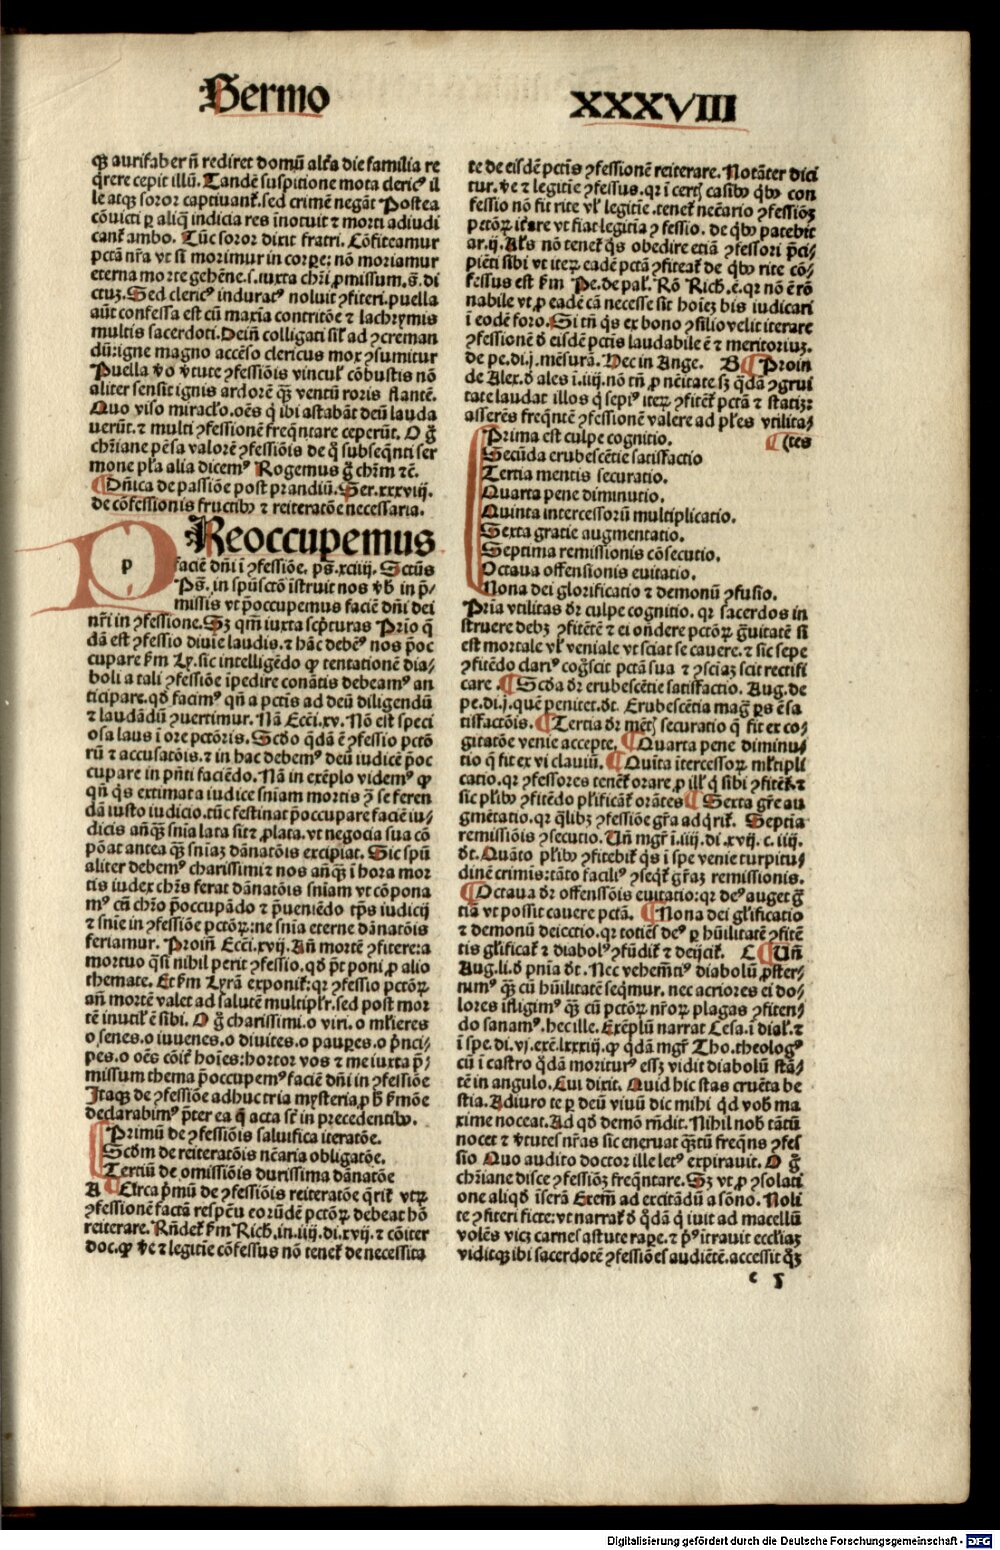 Sermo
XXXVIII
qꝫ aurifaber nō rediret domū altꝰa die familia re
q̄rere cepit illū. Tandē suspitione mota clericꝰ il
le atqꝫ soror captivanꝉ. sed crimē negāt Postea
cōvicti ꝑ aliq̄ indicia res inotuit ⁊ morti adiudi
canꝉ ambo. Tūc soror dixit fratri. Cōfiteamur
pctā nr̄a vt si morimur in corꝑe: nō moriamur
eterna morte gehēne. s. iuxta chr̄i ꝓmissum. s̄. di
ctuꝫ. Sed clericꝰ induratꝰ noluit ꝯfiteri. puella
aūt confessa est cū maxīa contritōe ⁊ lachrymis
multis sacerdoti. Dein̄ colligati sil̄ ad ꝯcreman
dū: igne magno accēso clericus mox ꝯsumitur
Puella v̄o v̄tute ꝯfessiōis vincul̄ cōbustis nō
aliter sensit ignis ardorē qꝫ̄ ventū roris flantē.
Quo viso miracl̄o. oēs q̄ ibi astabāt deū lauda
verūt. ⁊ multi ꝯfessionē freq̄ntare ceperūt. O ḡ
chr̄iane pēsa valorē ꝯfessiōis de q̄ subseq̄nti ser
mone pl̄a alia dicemꝰ Rogemus ḡ chr̄m ⁊c̄.
¶ Dn̄ica de passiōe post prandiū. Ser. xxxviij.
de cōfessionis fructibꝰ ⁊ reiteratōe necessaria.
p
PReoccupemus
faciē dn̄i ī ꝯfessiōe. ps̄. xciiij. Sctūs
Ps̄. in spūsctō īstruit nos v̄b̄ in p̄
missis vt p̄occupemus faciē dn̄i dei
nr̄i in ꝯfessione. Sꝫ qm̄ iuxta scp̄turas Prīo q̄
dā est ꝯfessio divīe laudis. ⁊ hāc debēꝰ nos p̄oc
cupare ẜm Ly. sic intelligēdo ꝙ tentationē dia⸗
boli a tali ꝯfessiōe īpedire conātis debeamꝰ an
ticipare. qd̄ facimꝰ qn̄ a pctīs ad deū diligendū
⁊ laudādū ꝯvertimur. Nā Ecc̄i. xv. Nō est speci
osa laus ī ore pctōris. Scd̄o q̄dā ē ꝯfessio pctō
rū ⁊ accusatōis. ⁊ in hac debemꝰ deū iudicē p̄oc
cupare in pn̄ti faciēdo. Nā in exēplo videmꝰ ꝙ
qn̄ q̄s extimat a iudice sniam mortis ꝯ̄ se feren
dā iusto iudicio. tūc festinat p̄occupare faciē iu⸗
dicis an̄qꝫ̄ snīa lata sit ⁊ ꝓlata. vt negocia sua cō
pōat antea qꝫ̄ snīaꝫ dānatōis excipiat. Sic spū
aliter debemꝰ charissimi ⁊ nos an̄qꝫ̄ ī hora mor
tis iudex chr̄s ferat dānatōis sniam vt cōpona
mꝰ cū chr̄o p̄occupādo ⁊ p̄veniēdo tp̄s iudicij
⁊ snīe in ꝯfessiōe pctōꝝ: ne snīa eterne dānatōis
feriamur. Proin̄ Ecc̄i. xvij. An̄ mortē ꝯfitere: a
mortuo q̄si nihil perit ꝯfessio. qd̄ p̄t poni ꝓ alio
themate. Et ẜm Lyrā exponiꝉ: qꝛ ꝯfessio pctōꝝ
an̄ mortē valet ad salutē multipl̄r. sed post mor
tē inutil̄ ē sibi. O ḡ charissimi. o viri. o ml̄ieres
o senes. o iuvenes. o divites. o pauꝑes. o p̄nci⸗
pes. o oēs cōiꝉ hoīes: hortor vos ⁊ me iuxta p̄⸗
missum thema p̄occupemꝰ faciē dn̄i in ꝯfessiōe
Itaqꝫ de ꝯfessiōe adhuc tria mysteria ꝓ b̄ ẜmōe
declarabimꝰ p̄ter ea q̄ acta sn̄t in precedentibꝰ.
Primū de ꝯfessiōis saluifica iteratōe.
Scd̄m de reiteratōis nēcaria obligatōe.
Tertiū de omissiōis durissima dānatōe
A ¶ Circa p̄mū de ꝯfessiōis reiteratōe q̄riꝉ vtꝝ
ꝯfessionē factā respēu eorūdē pctōꝝ debeat hō
reiterare. Rn̄deꝉ ẜm Rich. in. iiij. di. xvij. ⁊ cōiter
doc. ꝙ v̄e ⁊ legitīe cōfessus nō teneꝉ de necessita
te de eisdē pctīs ꝯfessionē reiterare. Notāter dici
tur. v̄e ⁊ legitīe ꝯfessus. qꝛ ī certꝭ casibꝰ q̄bꝰ con
fessio nō fit rite vl̄ legitīe. teneꝉ nēcario ꝯfessiōꝫ
pctōꝝ iterare vt fiat legitīa ꝯfessio. de q̄bꝰ patebit
ar. ij. Al̄s nō teneꝉ q̄s obedire etiā ꝯfessori p̄ci⸗
piēti sibi vt iteꝝ eadē pctā ꝯfiteaꝉ de q̄bꝰ rite cō⸗
fessus est ẜm Pe. de pal. Rō Rich. ē. qꝛ nō ē rō
nabile vt ꝓ eadē cā necesse sit hoīeꝫ bis iudicari
ī eodē foro. Si tn̄ q̄s ex bono ꝯsilio velit iterare
ꝯfessionē d̄ eisdē pctīs laudabile ē ⁊ meritoriuꝫ.
de pe. di. j. mēsurā. Hec in Ange. B ¶ Proin
de Alex. d̄ ales i. iiij. nō tn̄ ꝓ nēitate sꝫ q̄dā ꝯgrui
tate laudat illos q̄ sepiꝰ iteꝝ ꝯfitēꝉ pctā ⁊ statiꝫ:
asserēs freq̄ntē ꝯfessionē valere ad pl̄es vtilita⸗
¶ (tes
Prima est culpe cognitio.
Secūda erubescētie satisfactio
Tertia mentis securatio.
Quarta pene diminutio.
Quinta intercessorū multiplicatio.
Sexta gratie augmentatio.
Septima remissionis cōsecutio.
Octava offensionis evitatio.
Nona dei glorificatio ⁊ demonū ꝯfusio.
Prīa vtilitas dr̄ culpe cognitio. qꝛ sacerdos in
struere debꝫ ꝯfitētē ⁊ ei ondere pctōꝝ ḡuitatē si
est mortale vl̄ veniale vt sciat se cavere. ⁊ sic sepe
ꝯfitēdo clariꝰ coḡscit pctā sua ⁊ ꝯsciāꝫ scit rectifi
care. ¶ Scd̄a dr̄ erubescētie satisfactio. Aug. de
pe. di. j. quē penitet. dt̄. Erubescētia maḡ ꝑs ē sa
tisfactōis. ¶ Tertia dr̄ mētꝭ securatio q̄ fit ex co⸗
gitatōe venie accepte. ¶ Quarta pene diminu⸗
tio q̄ fit ex vi claviū. ¶ Quīta ītercessoꝝ ml̄tipli
catio. qꝛ ꝯfessores tenēꝉ orare ꝓ illꝭ q̄ sibi ꝯfitēꝉ. ⁊
sic pl̄ibꝰ ꝯfitēdo pl̄ificāꝉ orātes ¶ Sexta gr̄e au
gmētatio. qꝛ q̄libꝫ ꝯfessiōe gr̄a adq̄riꝉ. Septīa
remissiōis ꝯsecutio. Un̄ mgr̄ ī. iiij. di. xvij. c. iiij.
dt̄. Quāto pl̄ibꝰ ꝯfitebiꝉ q̄s ī spe venie turpitu⸗
dinē crimīs: tāto faciliꝰ ꝯseq̄ꝉ gr̄aꝫ remissionis.
¶ Octava dr̄ offensiōis evitatio: qꝛ deꝰ auget ḡ
tiā vt possit cavere pctā. ¶ Nona dei gl̄ificatio
⁊ demonū deiectio. qꝛ totiēs deꝰ ꝑ hūilitatē ꝯfitē
tis gl̄ificaꝉ ⁊ diabolꝰ ꝯfūdiꝉ ⁊ deijciꝉ. C ¶ Un̄
Aug. li. d̄ pnīa dt̄. Nec vehemētiꝰ diabolū ꝓster⸗
nimꝰ qꝫ̄ cū hūilitatē seq̄mur. nec acriores ei do⸗
lores īfligimꝰ qꝫ̄ cū pctōꝝ nr̄oꝝ plagas ꝯfiten⸗
do sanamꝰ. hec ille. Exēplū narrat Cesa. ī dial. ⁊
ī spe. di. vj. exē. lxxiij. ꝙ q̄dā mgr̄ Tho. theologꝰ
cū ī castro q̄dā moritur⁹ ess̄ꝫ vidit diabolū stā⸗
tē in angulo. Cui dixit. Quid hic stas cruēta be
stia. Adiuro te ꝑ deū vivū dic mihi qd̄ vob̄ ma
xime noceat. Ad qd̄ demō rn̄dit. Nihil nob̄ tātū
nocet ⁊ v̄tutes nr̄as sic eneruat qꝫ̄tū freq̄ns ꝯfes
sio Quo audito doctor ille letꝰ expiravit. O ḡ
chr̄iane disce ꝯfessiōꝫ freq̄ntare. Sꝫ vt ꝓ ꝯsolati
one aliqd̄ īserā Etem̄ ad excitādū a sōno. Noli
te ꝯfiteri ficte: vt narraꝉ d̄ q̄dā q̄ ivit ad macellū
volēs vicꝫ carnes astute raꝑe. ⁊ p̄ꝰ ītravit eccl̄iaꝫ
viditqꝫ ibi sacerdotē ꝯfessiōes audiētē. accessit q̄ꝫ
c 5
Digitalisierung gefördert durch die Deutsche Forschungsgemeinschaft - DFG